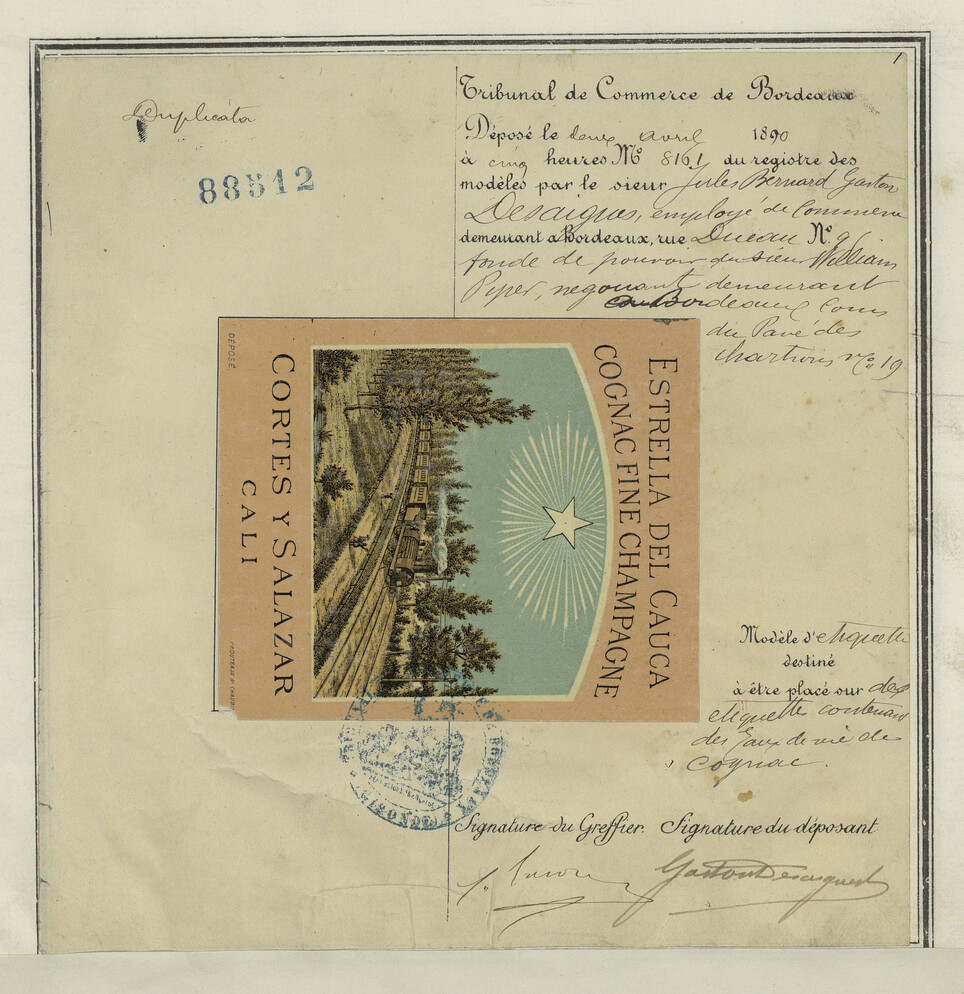 1
Duplicata
88512
Tribunal de Commerce de Bordeaux
Déposé le deux avril 1890
à cinq heures Nº 8161 du registre des
modèles par le sieur Jules Bernard Gaston
Desaigues, employé de Commerce
demeurant à Bordeaux, rue Ducau Nº 9
fondé de pouvoir du sieur William
Piper, négociant demeurant
Bordeaux Cours
du Pavé des
Chartrons nº 19
DÉPOSÉ
ESTRELLA DEL CAUCA
COGNAC FINE CHAMPAGNE
CORTES Y SALAZAR
CALI
Modèle d'etiquette
destiné
à être placé sur des
etiquettes contenant
des Eaux de vie de
Cognac.
Signature du Greffier. Signature du déposant